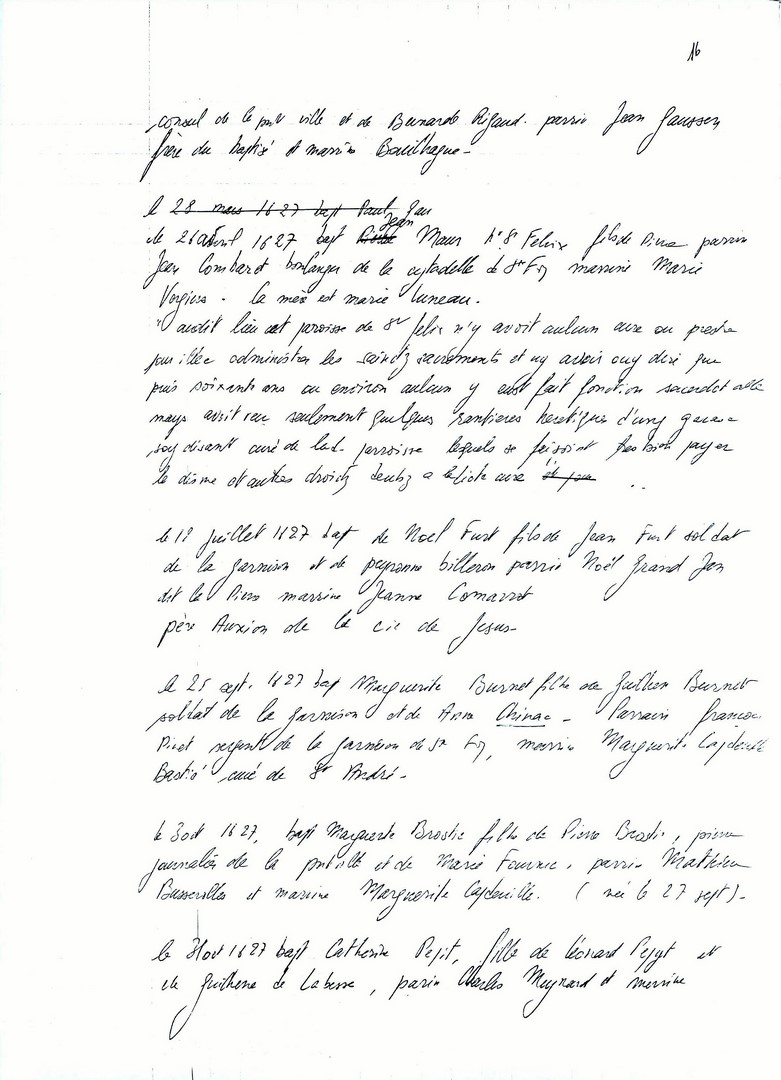 16
consul de la pnt ville et de Bernarde Rigaud. parrin Jean Gaussen
frère du baptisé et marrine Bouilhague -
le 28 mars 1627 bapt Paul Jean
le 26 avril 1627 bapt Jean Maur St Felix fils de Pierre parrin
Jean Combarot boulanger de la cytadelle de Ste Foy marrine Marie
Vergiers - la mère est marie Luneau.
" audit lieu et paroisse de St felix n'y avoit auleun cure ou prestre
pour illec administrer les sainctz sacrements et ny avoir ouy dire que
puis soixante ans ou environ auleun y eust fait fonction sacerdotalle
mays avoit veu seulement quelques rantieres heretiques d'ung
soy disant curé de lad. parroisse lesquels se faisoint bien payer
le disme et autres droictz deubz a cure
le 18 juillet 1627 bapt de Noël Furt fils de Jean Furt soldat
de la garnison et de peyronne billeron parrin Noël Grand Jean
dit le marrine Jeanne Comarrot
père Auxion de la cie de Jesus -
le 25 sept. 1627 bap Marguerite Burnet filhe de Guilhen Burnet
soldat de la garnison et de Anne Chinac - Parrain francois
Picot sergent de la garnison de Ste Foy, marrine Marguerite Capdeville
Bastié curé de St André -
le 3 oct 1627, bapt Marguerite Brostie filhe de Pierre Brostie,
journalier de la pnt ville et de Marie Fournie, parrin Mathieu
Busserolles et marrine Marguerite Capdeville. (née le 27 sept) -
le 31 oct 1627 bapt Catherine Pepit, fille de léonard Pepyt et
de Guilhene de Labesse, parrin Charles Meynard et marrine